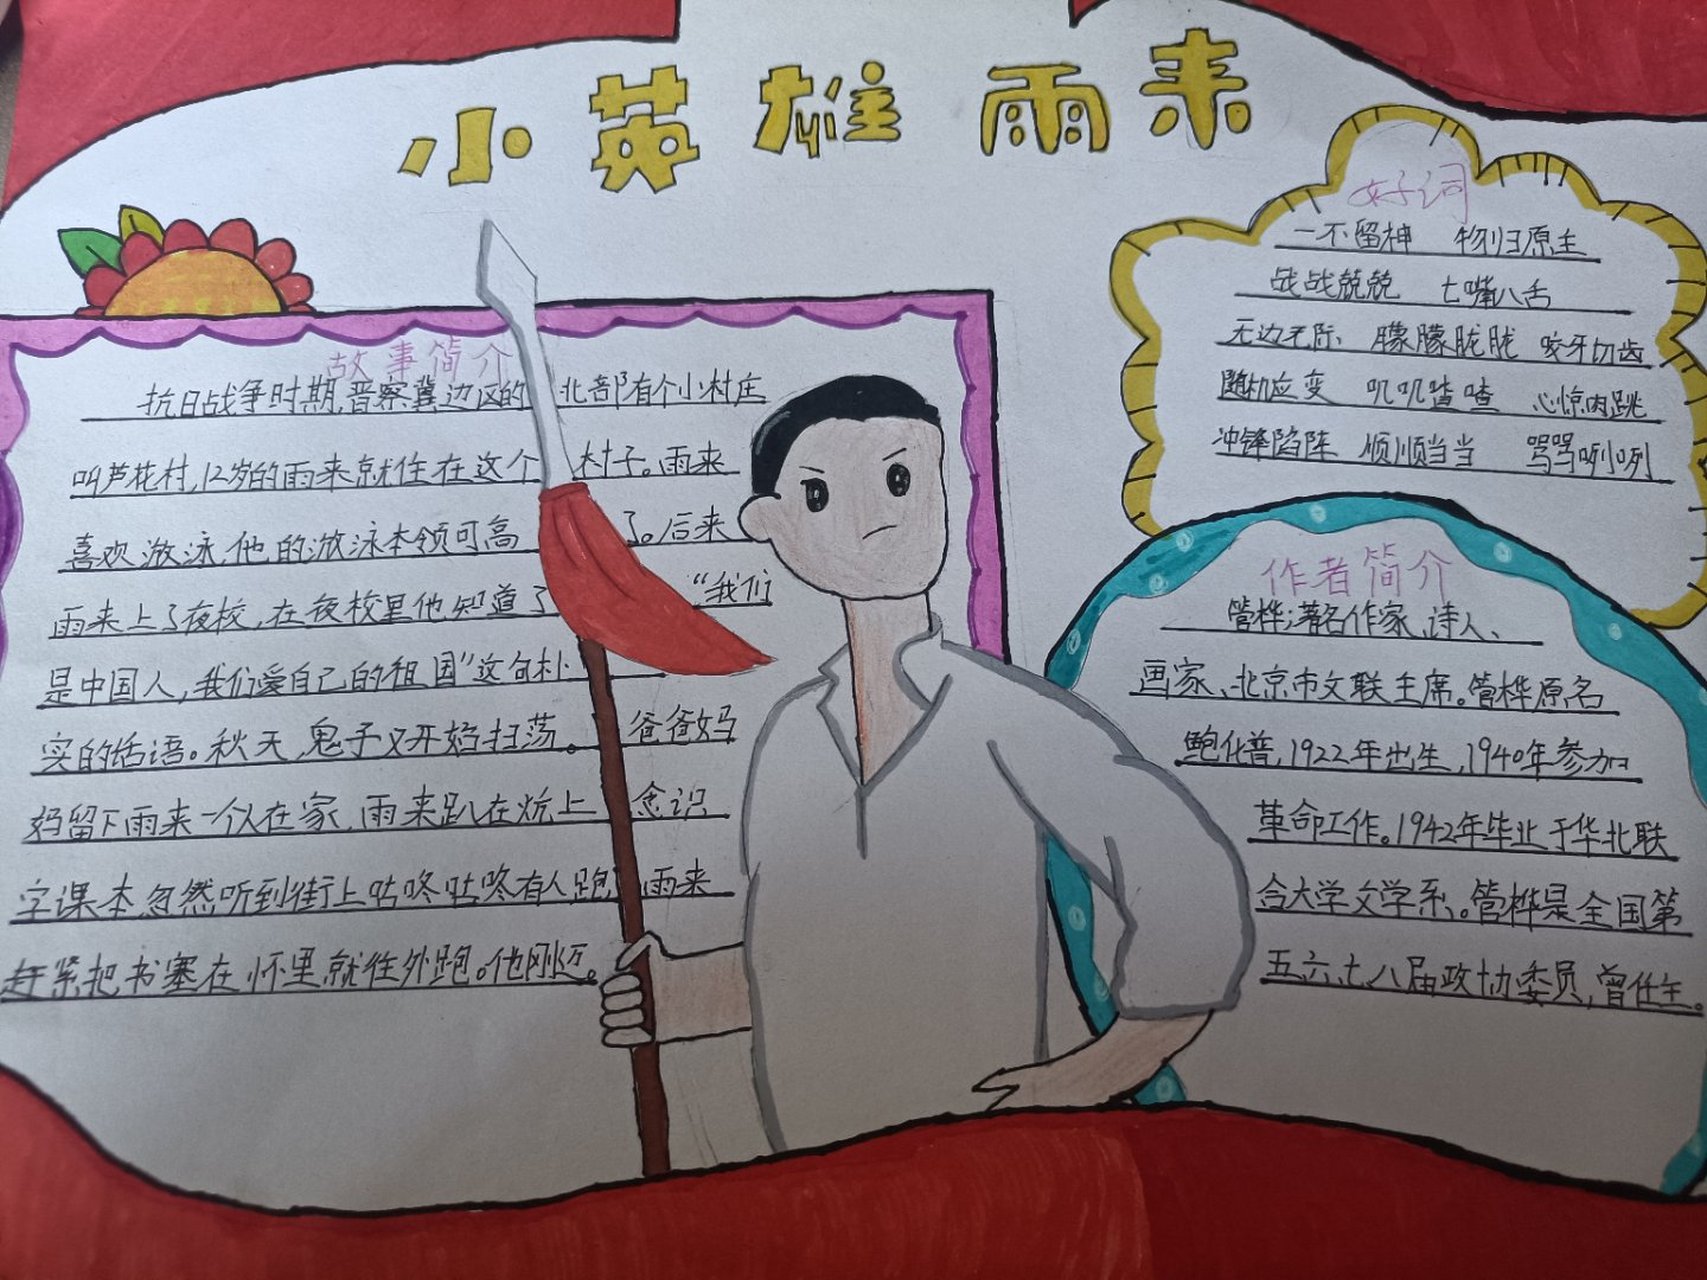 小英雄雨来
故事简介
抗日战争时期,晋察冀边区的北部有个小村庄
叫芦花村,12岁的雨来就住在这个村子。雨来
喜欢游泳,他的游泳本领可高了。后来
雨来上了夜校,在夜校里他知道了“我们
是中国人,我们爱自己的祖国”这句朴
实的话语。秋天,鬼子又开始扫荡。爸爸妈
妈留下雨来一个人在家,雨来趴在炕上念识
字课本,忽然听到街上咕咚咕咚有人跑,雨来
赶紧把书塞在怀里,就往外跑。他刚迈。
好词
一不留神 物归原主
战战兢兢 七嘴八舌
无边无际 朦朦胧胧 咬牙切齿
随机应变 叽叽喳喳 心惊肉跳
冲锋陷阵 顺顺当当 骂骂咧咧
作者简介
管桦;著名作家、诗人、
画家、北京市文联主席。管桦原名
鲍化普,1922年出生,1940年参加
革命工作。1942年毕业于华北联
合大学文学系。管桦是全国第
五六七八届政协委员,曾任主。